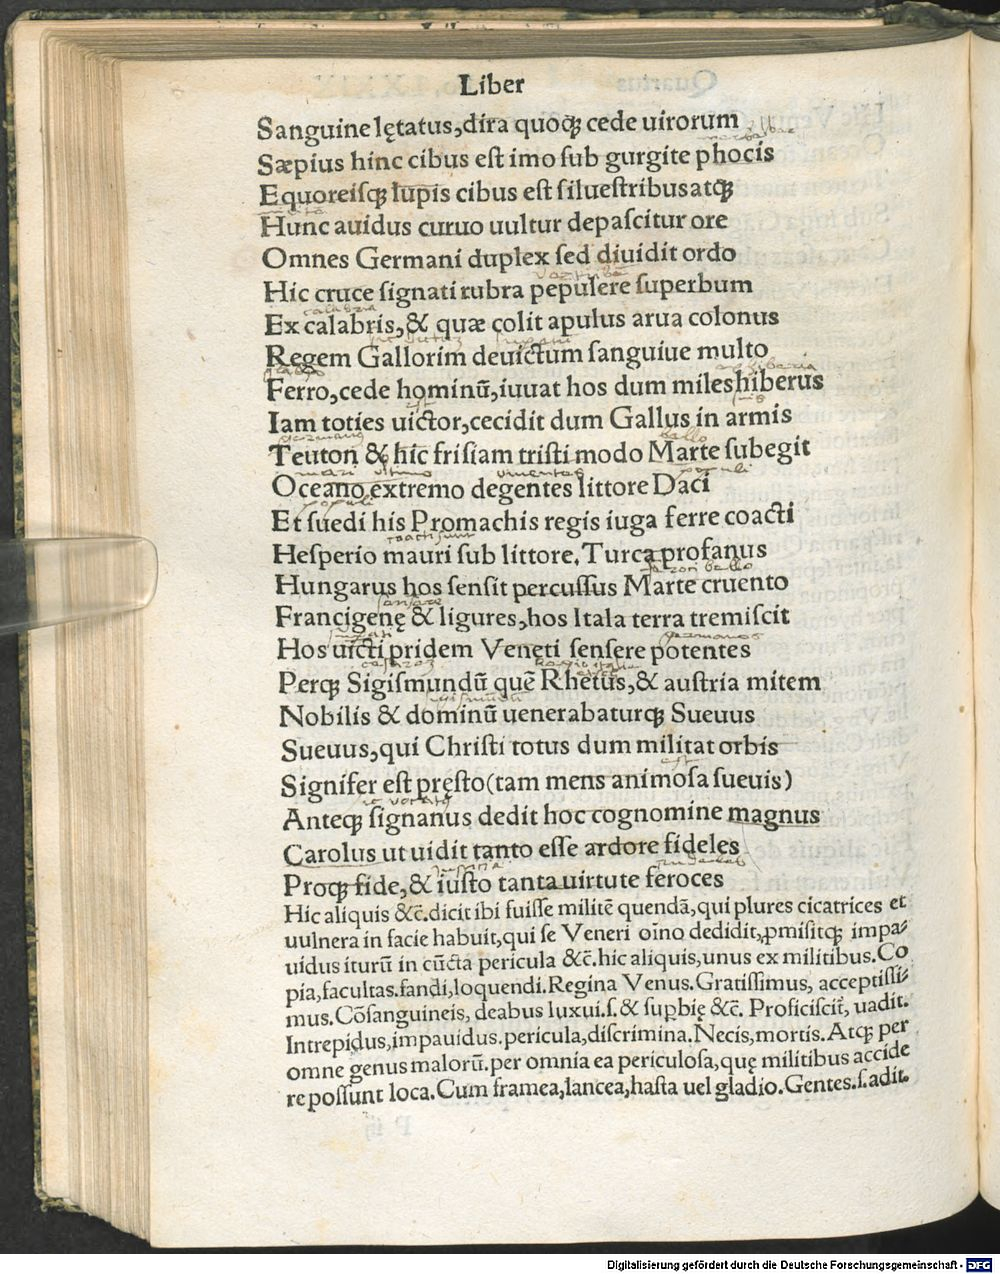 Liber
Sanguine lętatus,dira quoq̃ cede uirorum
Sæpius hinc cibus est imo sub gurgite phocis
Equoreisq̃ lupis cibus est siluestribus atq̃
Hunc auidus curuo uultur depascitur ore
Omnes Germani duplex sed diuidit ordo
Hic cruce signati rubra pepulere superbum
calabria
Ex calabris,& quæ colit apulus arua colonus
Regem Gallorim deuictum sanguiue multo
Ferro,cede hominũ,iuuat hos dum miles hiberus
est
Iam toties uictor,cecidit dum Gallus in armis
bello
Teuton & hic frisiam tristi modo Marte subegit
mari ultimo viuentes populi
Oceano extremo degentes littore Daci
populi
Et suedi his Promachis regis iuga ferre coacti
coacti sunt
Hesperio mauri sub littore.Turca profanus
bello
Hungarus hos sensit percussus Marte cruento
Francigenę & ligures,hos Itala terra tremiscit
germanos
Hos uicti pridem Veneti sensere potentes
Perq̃ Sigismundũ quẽ Rhetus,& austria mitem
Nobilis & dominũ uenerabaturq̃ Sueuus
Sueuus,qui Christi totus dum militat orbis
est
Signifer est pręsto(tam mens animosa sueuis)
Anteq̃ signanus dedit hoc cognomine magnus
Carolus ut uidit tanto esse ardore fideles
Proq̃ fide,& iusto tanta uirtute feroces
Hic aliquis &c̃.dicit ibi fuisse militẽ quendã,qui plures cicatrices et
uulnera in facie habuit,qui se Veneri oĩno dedidit,ꝓmisitq̃ impa⸗
uidus iturũ in cũcta pericula &c̃.hic aliquis,unus ex militibus.Co
pia,facultas.fandi,loquendi.Regina Venus.Gratissimus, acceptissi⸗
mus.Cõsanguineis, deabus luxui.s.& supbię &c̃. Proficiscit̃, uadit.
Intrepidus,impauidus.pericula,discrimina.Necis,mortis.Atq̃ per
omne genus malorũ.per omnia ea periculosa,quę militibus accide
re possunt loca.Cum framea,lancea,hasta uel gladio.Gentes.s.adit.
Digitalisierung gefördert durch die Deutsche Forschungsgemeinschaft - DFG